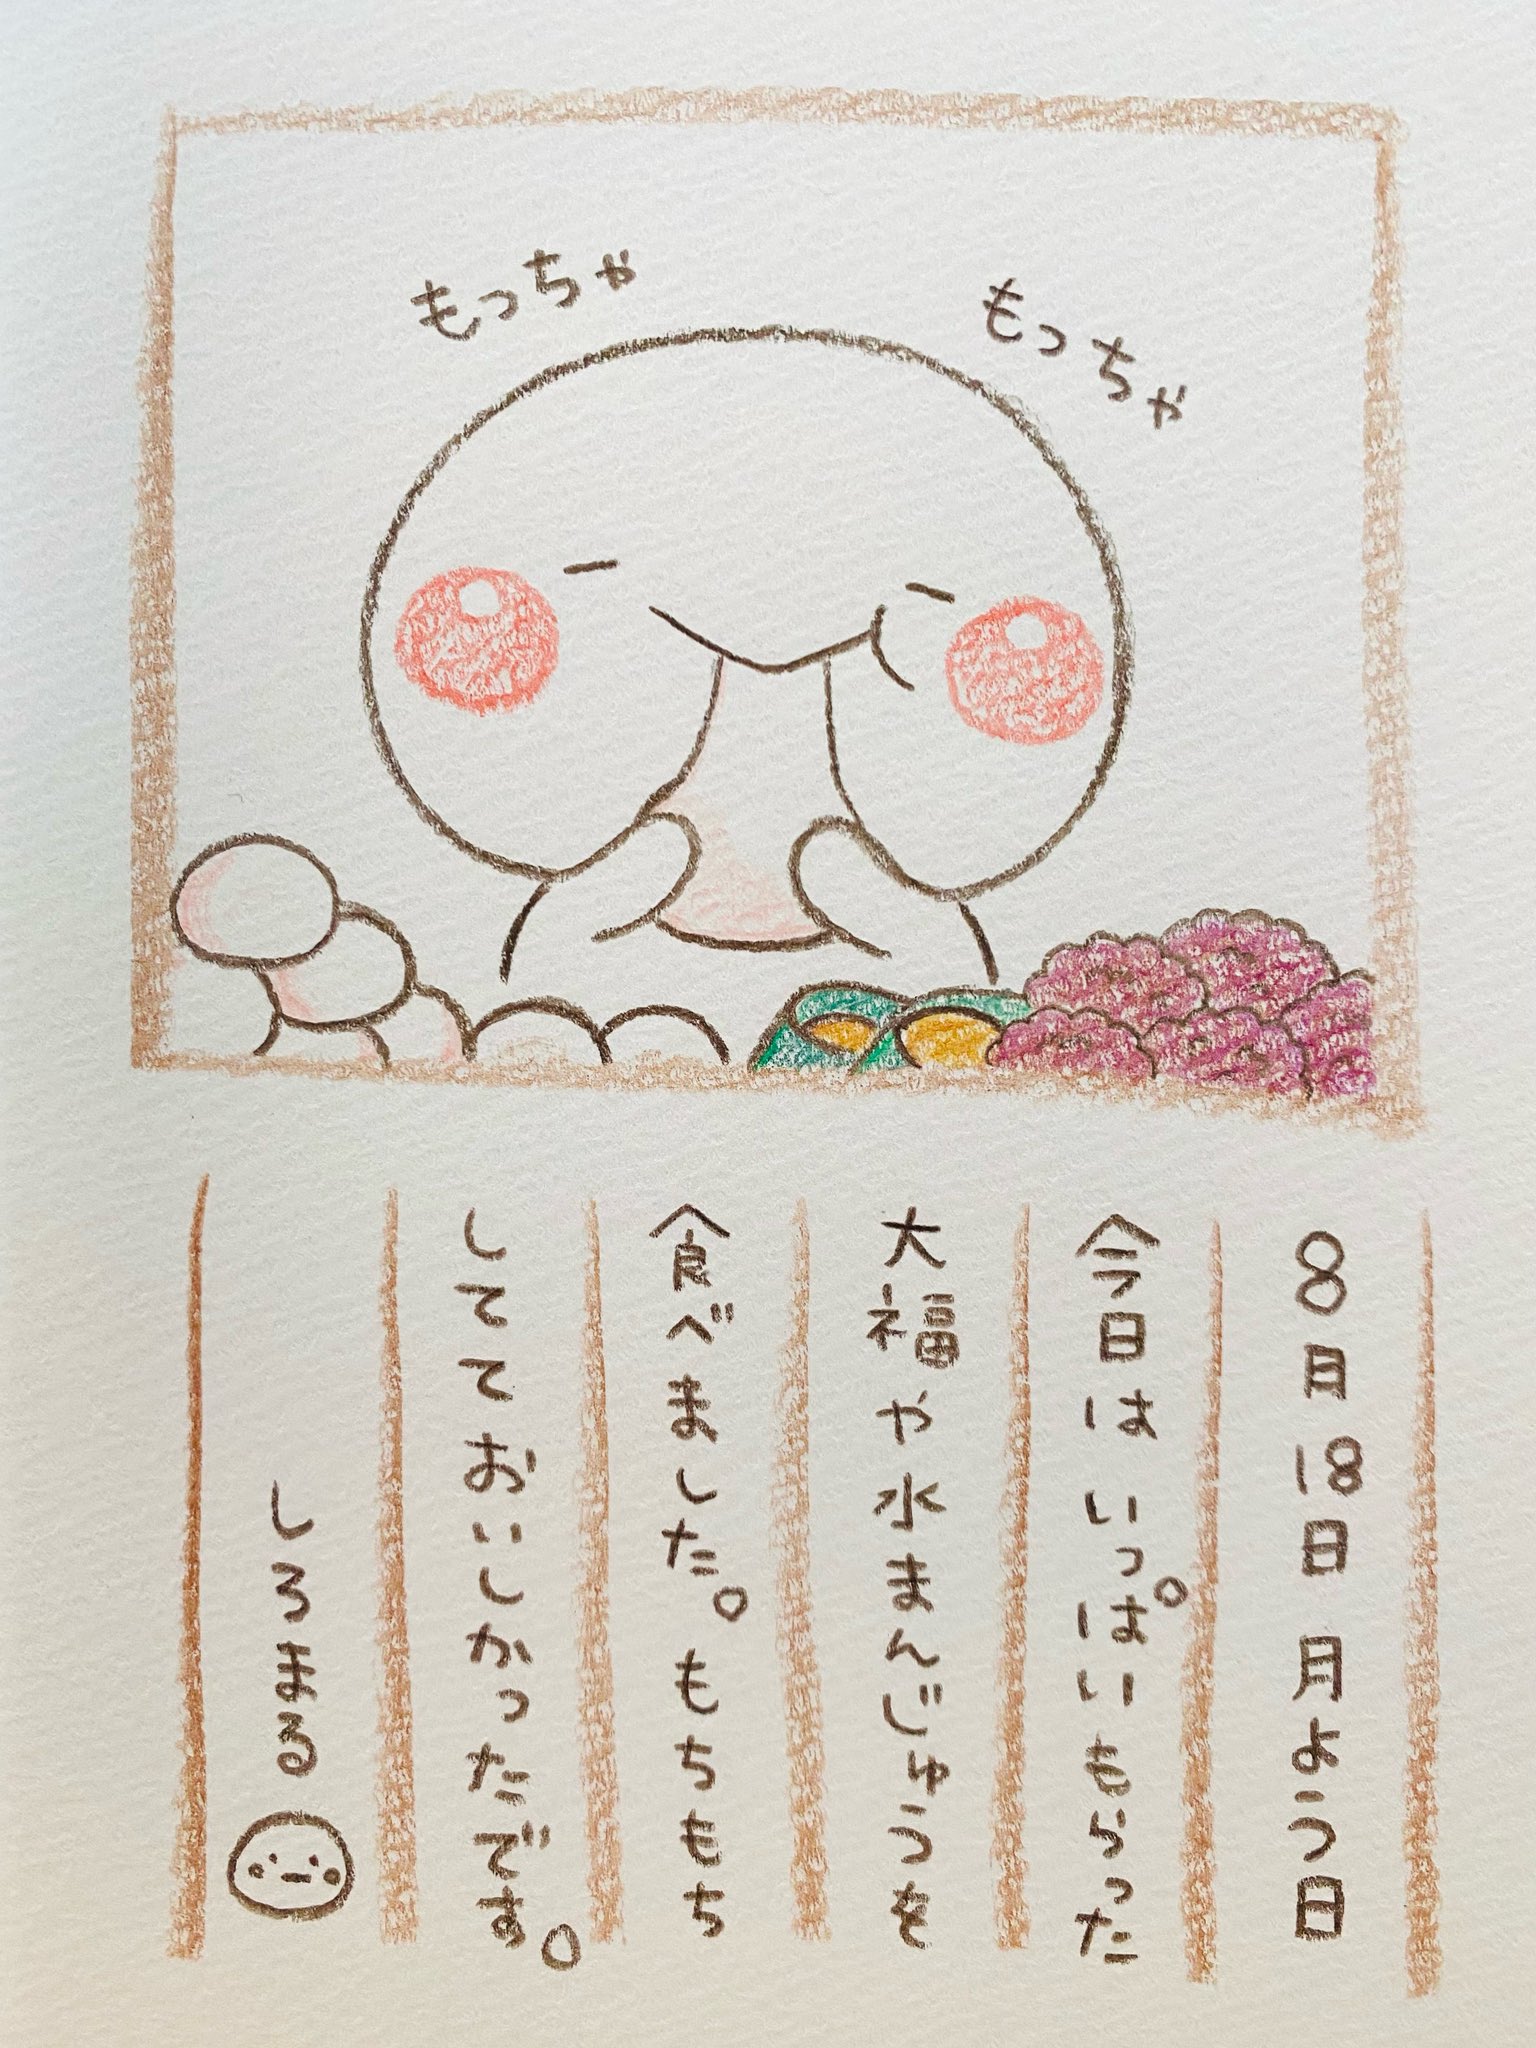 もっちゃ
もっちゃ
8月18日 月よう日
今日は いっぱいもらった
大福や水まんじゅうを
食べました。もちもち
しててておいしかったです。
しろまる